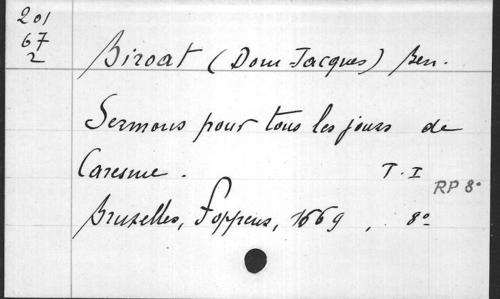 201
67
2
Biroat (Dom Jacques) Ben.
Sermons pour tous les jours de
Caresme. T. I
RP 8°
Bruxelles, Foppens, 1669, 8°